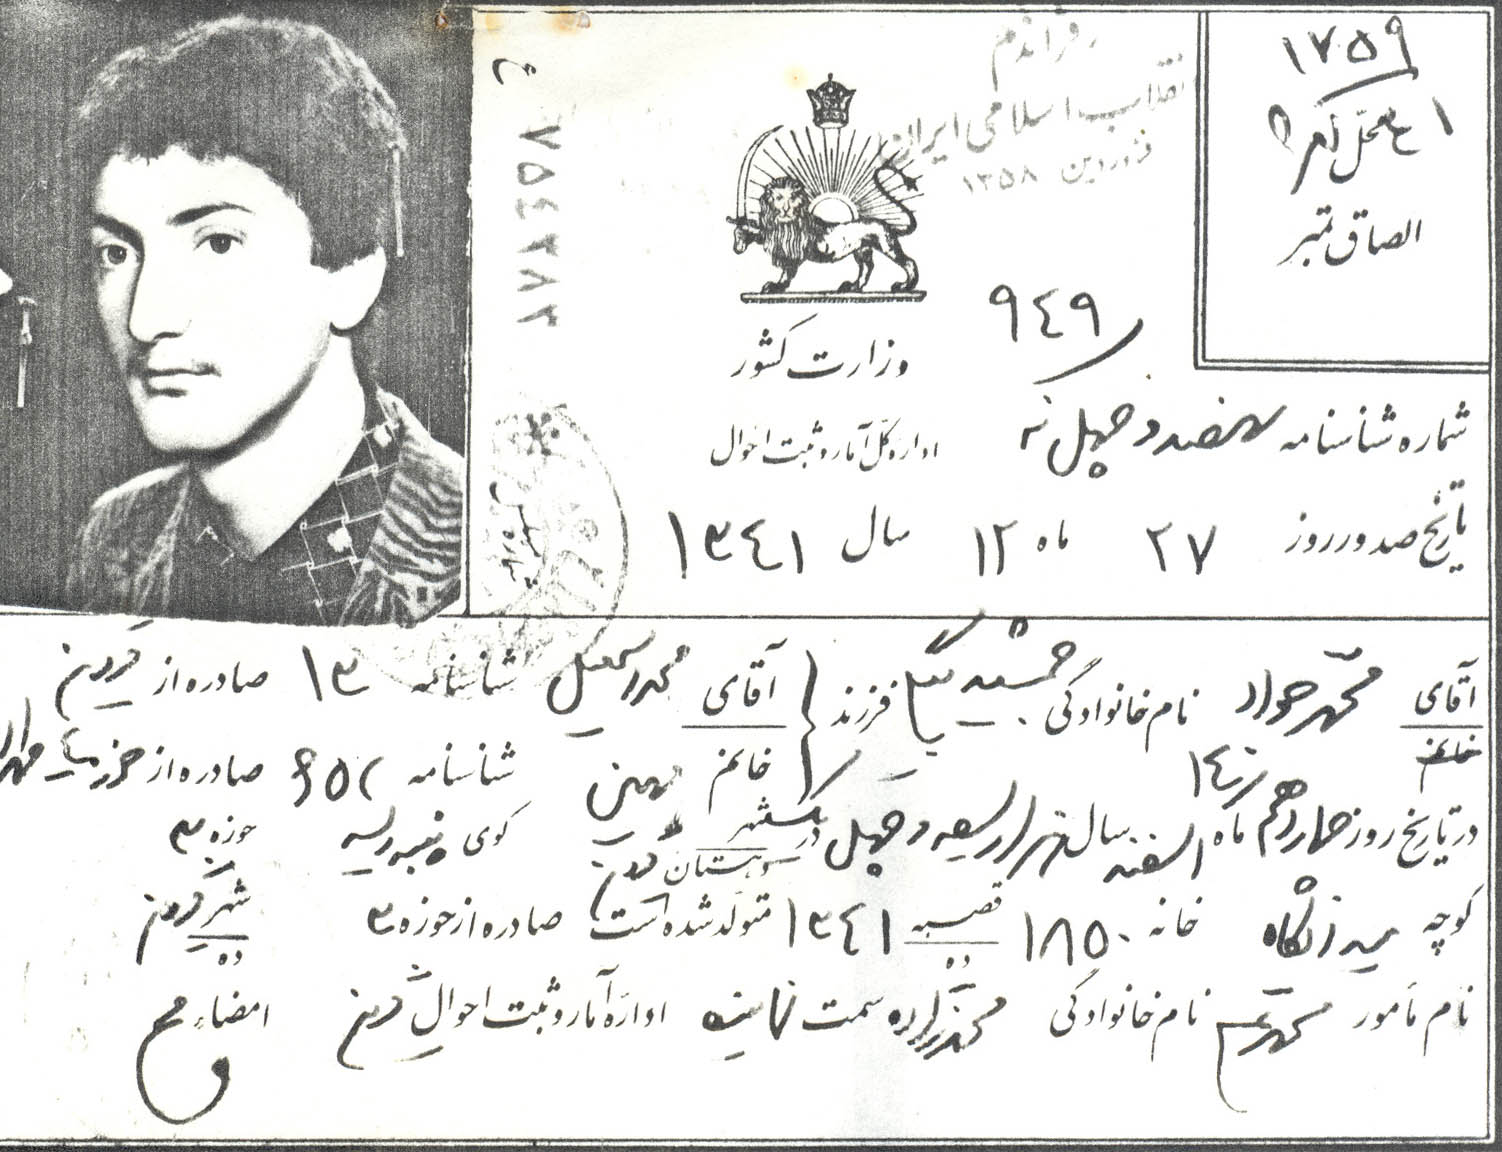 ۱۷۵۹
۱ ع محل
الصاق تمبر
رفراندم
انقلاب اسلامی ایران
فروردین ۱۳۵۸
۷۵٤۲۸۳
وزارت کشور
اداره کل آمار و ثبت احوال
۹٤۹
شماره شناسنامه نهصد و چهل نه
تاریخ صدور روز ۲۷ ماه ۱۲ سال ۱۳٤۱
آقای خانم محمد جواد نام خانوادگی جمشید فرزند آقای محمد اسمعیل شناسنامه ۱۳ صادره از قزوین
خانم مهین شناسنامه ۶۵۲ صادره از
در تاریخ روز چهاردهم ماه اسفند سال هزار و سیصد و چهل در شهر کوی پنبه ریسه حوزه ۳
شهرستان قزوین
کوچه خانه ۱۸۵۰ قصبه ده ۱۳٤۱ متولد شده است صادره از حوزه ۳ شهر ده قزوین
نام مأمور نام خانوادگی سمت نماینده اداره آمار و ثبت احوال قزوین امضاء